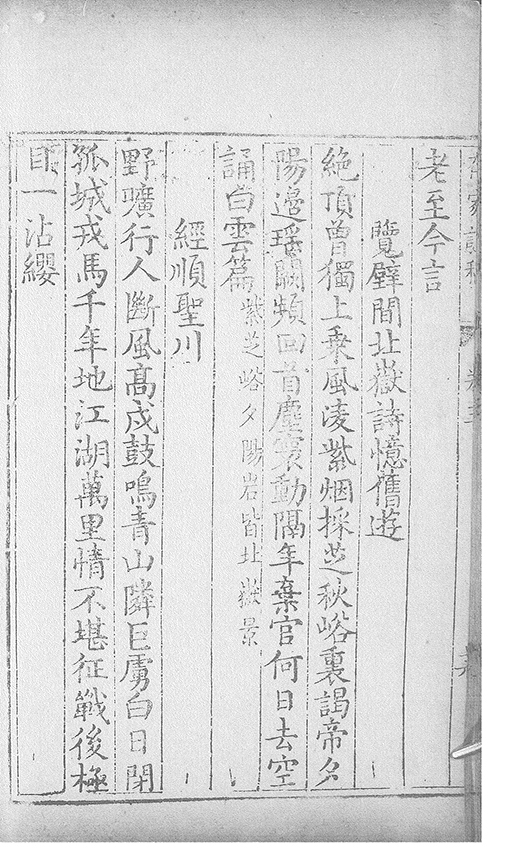 老至今言
覽壁間北嶽詩憶舊遊
絶頂曾獨上乗風凌紫烟採芝秋峪裏謁帝夕
陽邊瑶闕頻回首塵寰動隔年棄官何日去空
誦白雲篇紫芝峪夕陽岩皆北嶽景
經順聖川
野曠行人斷風髙戍鼓鳴青山隣巨虜白日閉
孤城戎馬千年地江湖萬里情不堪征戰後極
目一沾纓